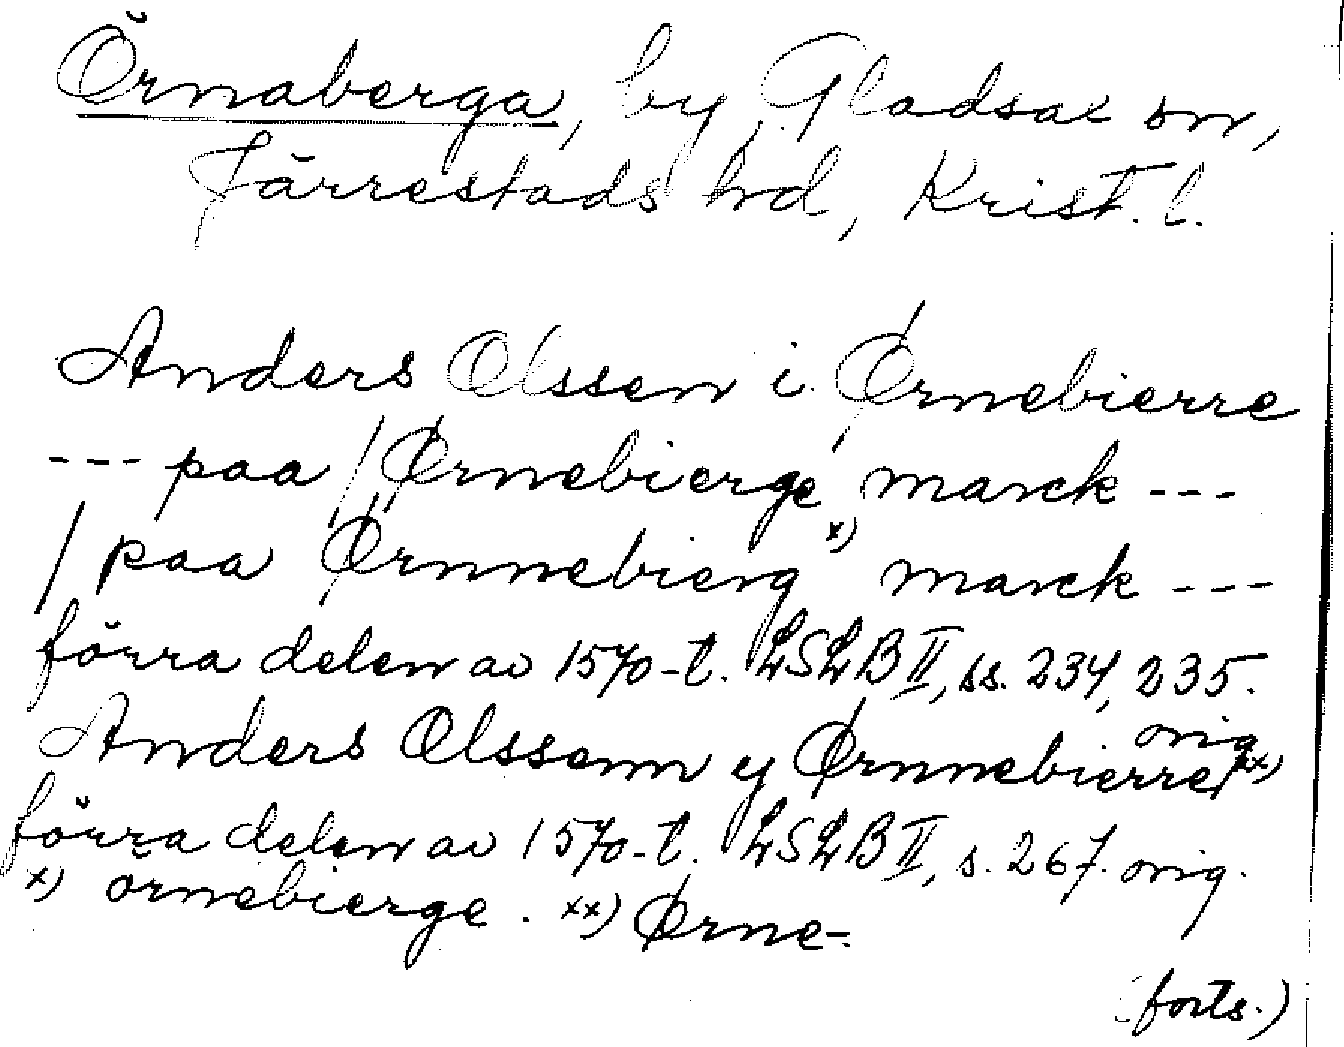 Örnaberga, by, Gladsax sn,
Järrestads hd, Krist. l.
Anders Olssen i Ørnebierre
--- paa / Ørnebierge marck ---
/ paa Ørnnebierg x) marck ---
förra delen av 1570-t. LSLB II, ss. 234, 235.
orig.
Anders Olssenn y Ørnnebierre, xx)
förra delen av 1570-t. LSLB II, s. 267. orig.
x) örnebierge. xx) Ørne-.
(forts.)